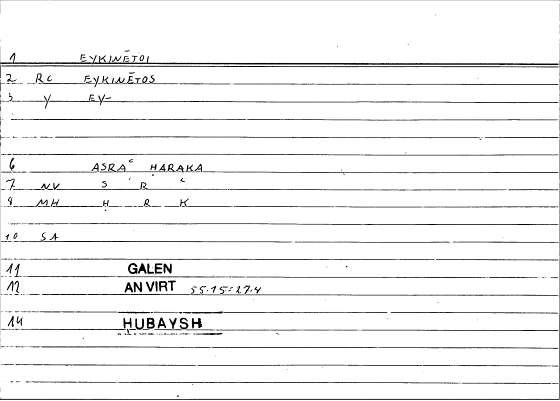 1 EYKINĒTOI
2 RC EYKINĒTOS
3 Y EY-
6 ASRAʿ ḤARAKA
7 NV S ʾ R ʿ
8 MH Ḥ R K
10 SA
11 GALEN
12 AN VIRT 55.15=27.4
14 ḤUBAYSH